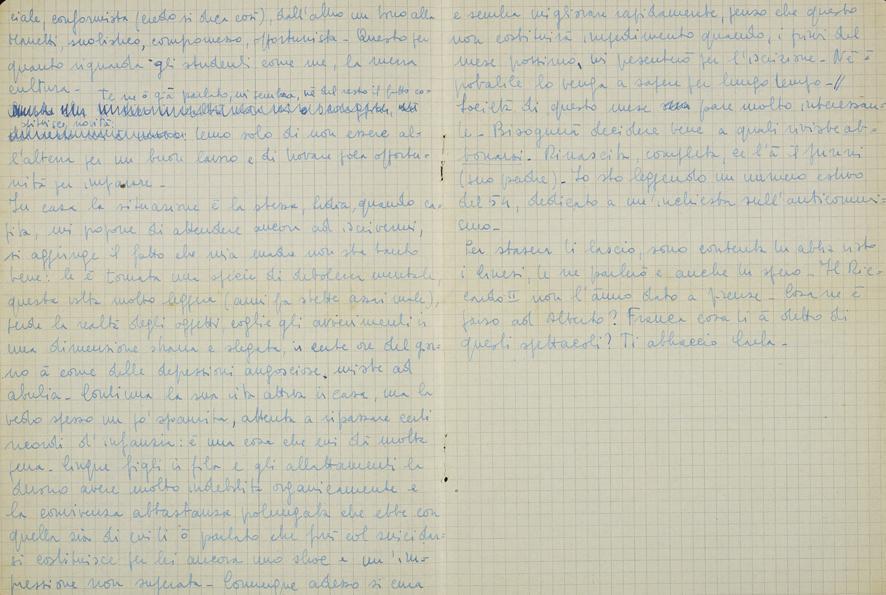 ciale, conformista (credo si dica così), dall'altro un tono alla
Manetti, snobistico, compromesso, opportunista - Questo per
quanto riguarda gli studenti come me, la mera
cultura -
Te ne ò già parlato, mi sembra, nè del resto il fatto co-
stituisce novità.
temo solo di non essere al-
l'altezza per un buon lavoro e di trovare poca opportu-
nità per imparare -
In casa la situazione è la stessa, Lidia, quando ca-
pita, mi propone di attendere ancora ad iscrivermi,
si aggiunge il fatto che mia madre non sta tanto
bene: le è tornata una specie di debolezza mentale,
questa volta molto leggera (anni fa stette assai male),
perde la realtà degli oggetti, coglie gli avvenimenti in
una dimensione strana e slegata, in certe ore del gior-
no à come delle depressioni angosciose, miste ad
abulia - Continua la sua vita attiva in casa, ma la
vedo spesso un po' spaurita, attenta a ripassare certi
ricordi d'infanzia: è una cosa che mi dà molta
pena - Cinque figli in fila e gli allattamenti la
devono avere molto indebolita organicamente e
la convivenza abbastanza prolungata che ebbe con
quella zia di cui ti ò parlato che finì col suicidar-
si costituisce per lei ancora uno shoc e un'im-
pressione non superata - Comunque adesso si cura
e sembra migliorare rapidamente, penso che questo
non costituirà impedimento quando, i primi del
mese prossimo, mi presenterò per l'iscrizione - Nè è
probabile lo venga a sapere per lungo tempo - //
Società di questo mese pare molto interessan-
te - Bisognerà decidere bene a quali riviste ab-
bonarsi - Rinascita, completa, ce l'à il
(suo padre) - Io sto leggendo un numero estivo
del 54, dedicato a un'inchiesta sull'anticomuni-
smo -
Per stasera ti lascio, sono contenta tu abbia visto
i cinesi, te ne parlerò e anche tu spero - Il Ric-
cardo II non l'ànno dato a Firenze - Cosa ne è
parso ad Alberto? Franca cosa ti à detto di
questi spettacoli? Ti abbraccio Carla -